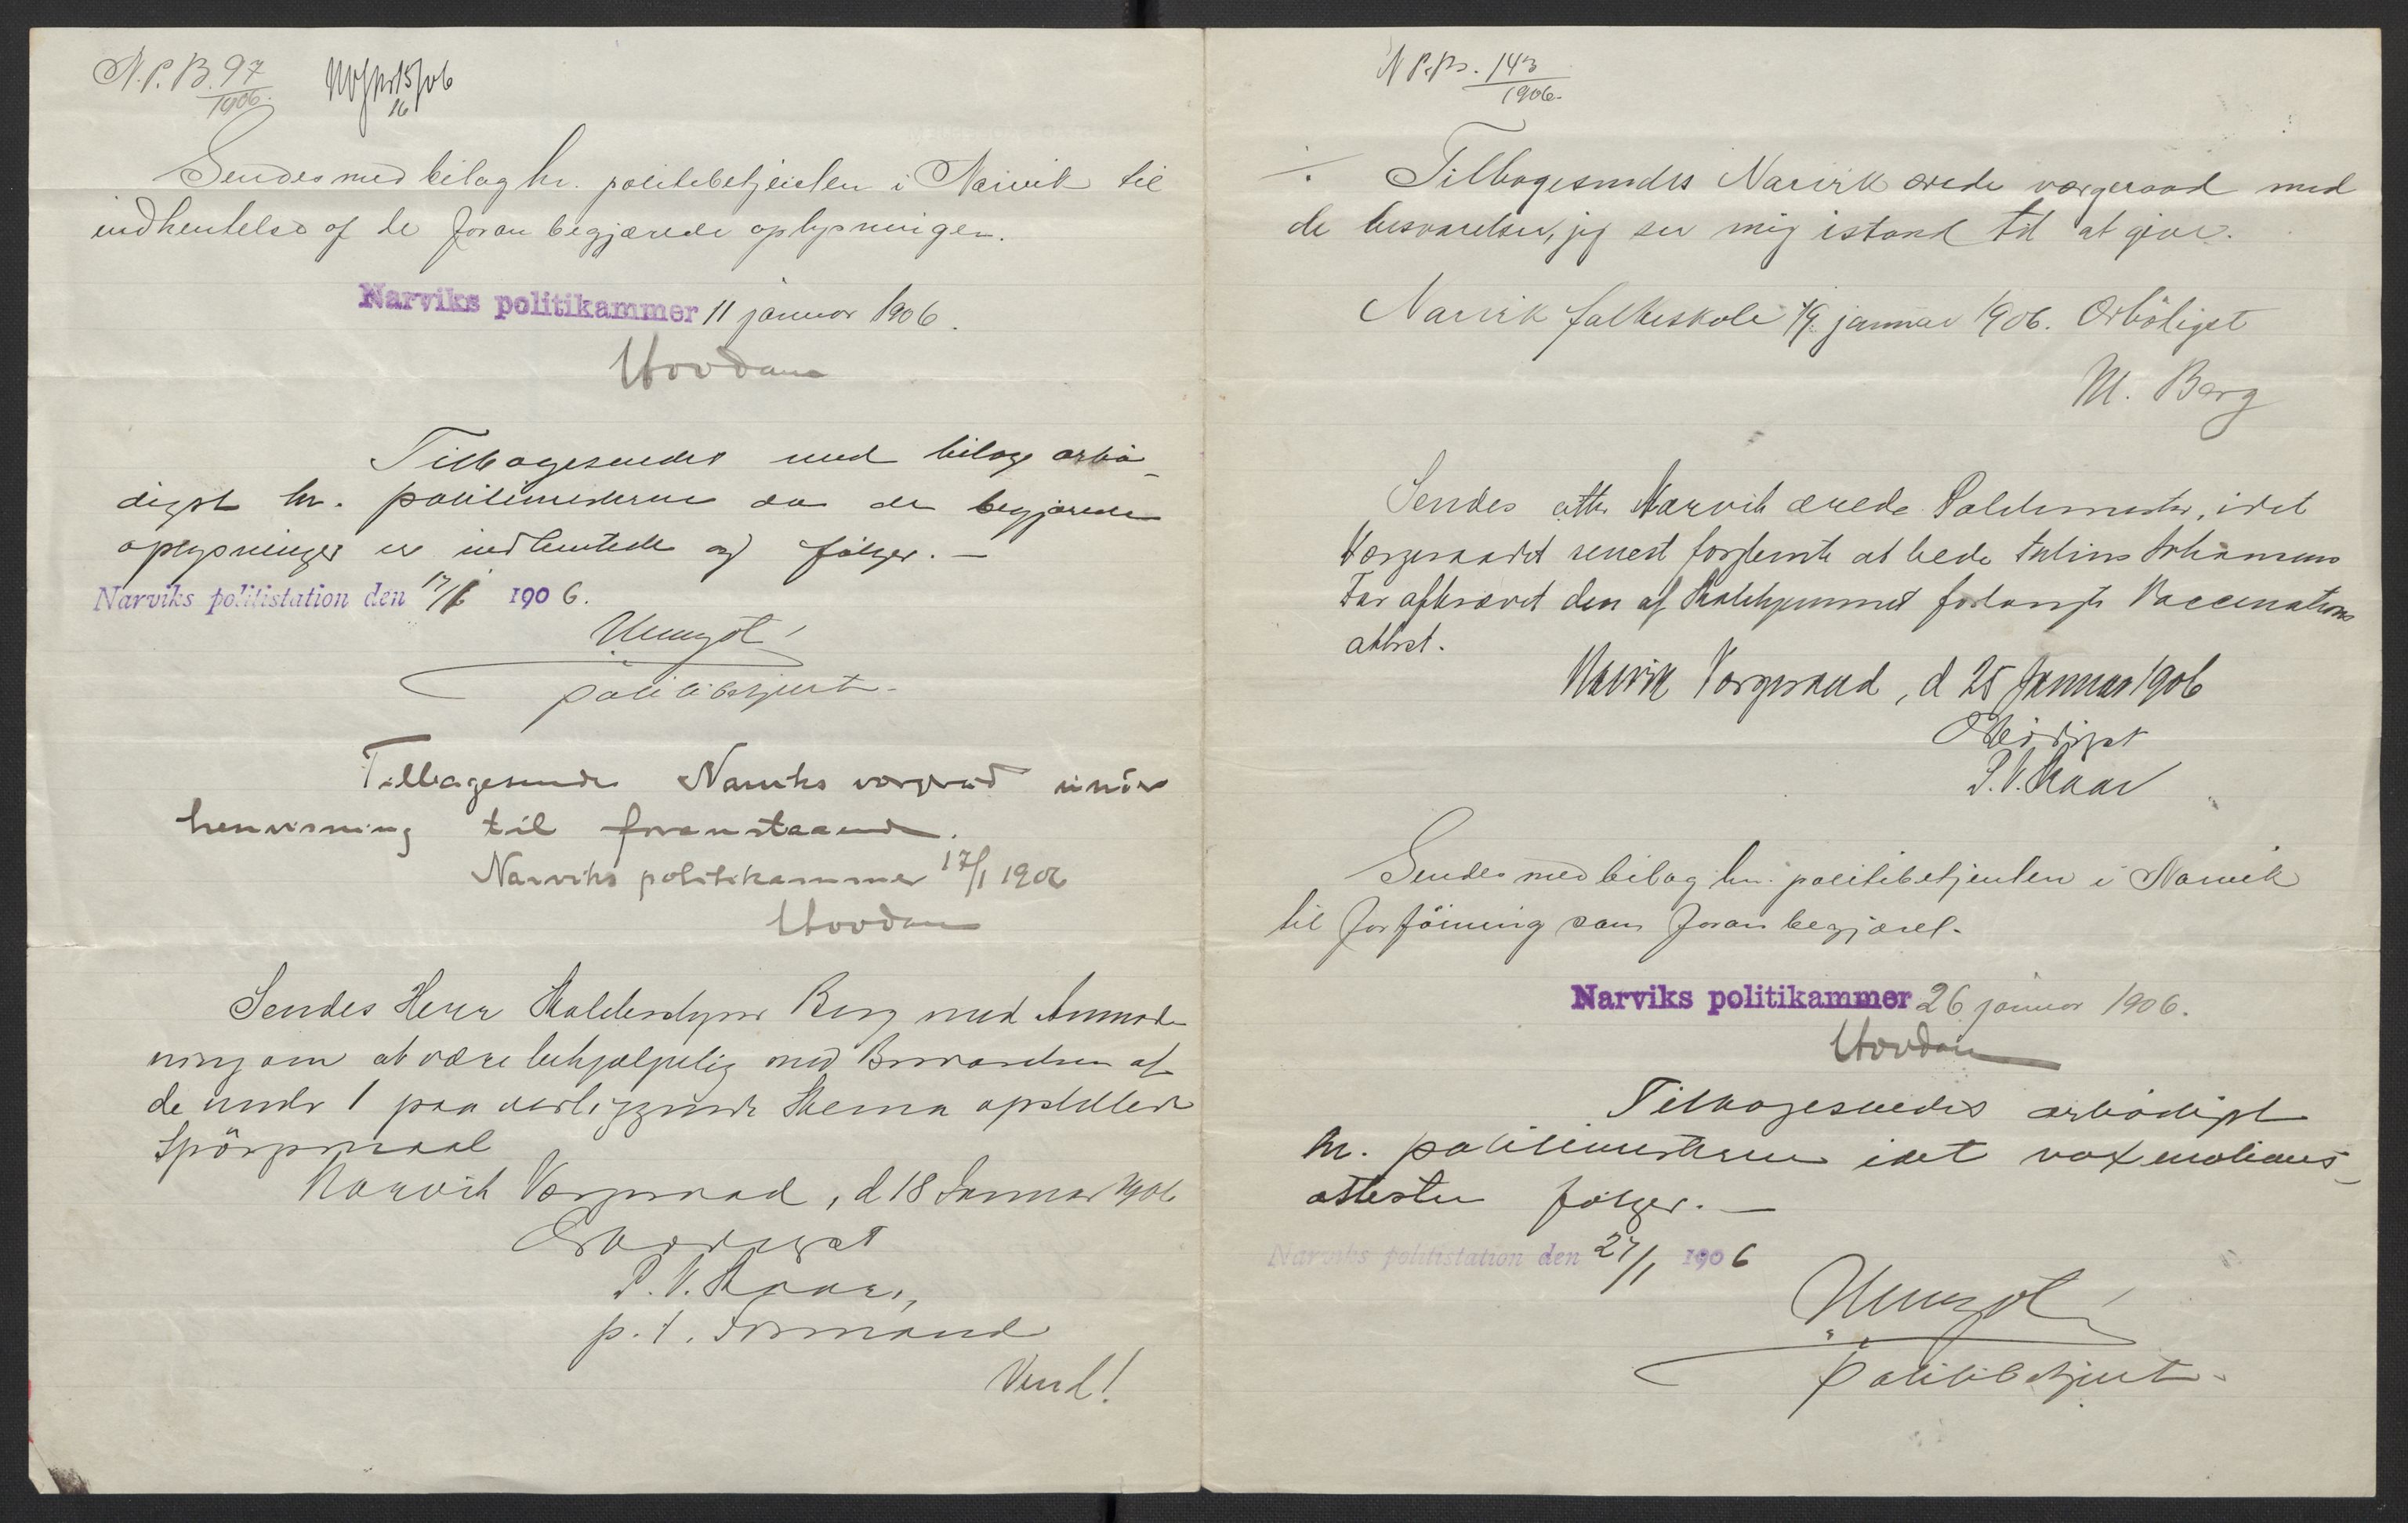 N.P.B. 97
1906.
Sendes med bilag hr. politibetjenten i Narvik til
indhentelse af de foran begjærede oplysninger.
Narviks politikammer 11 januar 1906.
Tilbagesendes med bilage ærbø-
digst hr. politimesteren da de begjærede
oplysninger er indhentede og følger. —
Narviks politistation den 17/1 1906.
politibetjent.
Tilbagesendes Narviks vergeraad under
henvisning til foranstaaende.
Narviks politikammer 17/1 1906
Sendes Herr Skolebestyrer Berg med Anmod-
ning om at være behjælpelig med Besvarelsen af
de under 1 paa vedliggende Skema opstillede
Spörgsmaal
Narvik Værgeraad, d 18 Januar 1906
Ærbødigst
p.t. Formand
Vend!
N.P.B. 143
1906.
./. Tilbagesendes Narvik ærede værgeraad med
de besvarelser, jeg ser mig istand til at give.
Narvik folkeskole 19 januar 1906. Ærbödigst
M. Berg
Sendes Narvik ærede Politimester, idet
Værgeraadet senest forglemte at bede Julius Johansens
Far afkrævet den af Skolehjemmet forlangte Vaccinations
attest.
Narvik Værgeraad, d 25 Januar 1906
Ærbødigst
Sendes med bilag hr. politibetjenten i Narvik
til forföining som foran begjæret.
Narviks politikammer 26 januar 1906.
Tilbagesendes ærbødigst
hr. politimesteren idet vaxinations-
attesten følger. —
Narviks politistation den 27/1 1906
politibetjent.